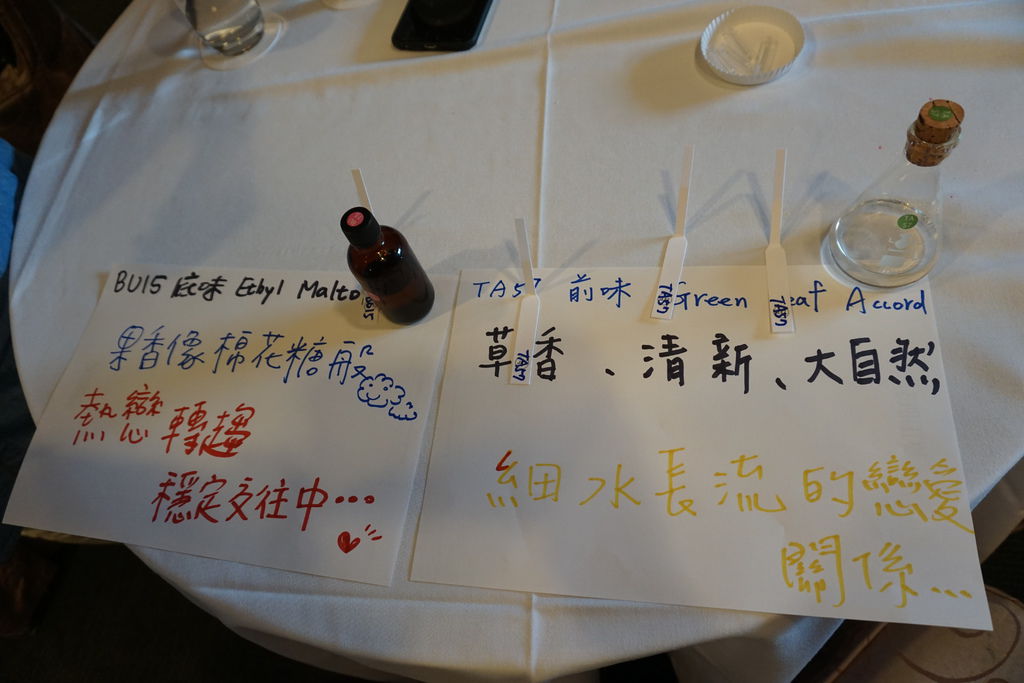 BU15 底味 Ethyl Malto
果香像棉花糖般
熱戀轉趨
穩定交往中…
TA57 前味 Green Leaf Accord
草香、清新、大自然,
細水長流的戀愛
關係…
BU15
TA57
TA57
TA57